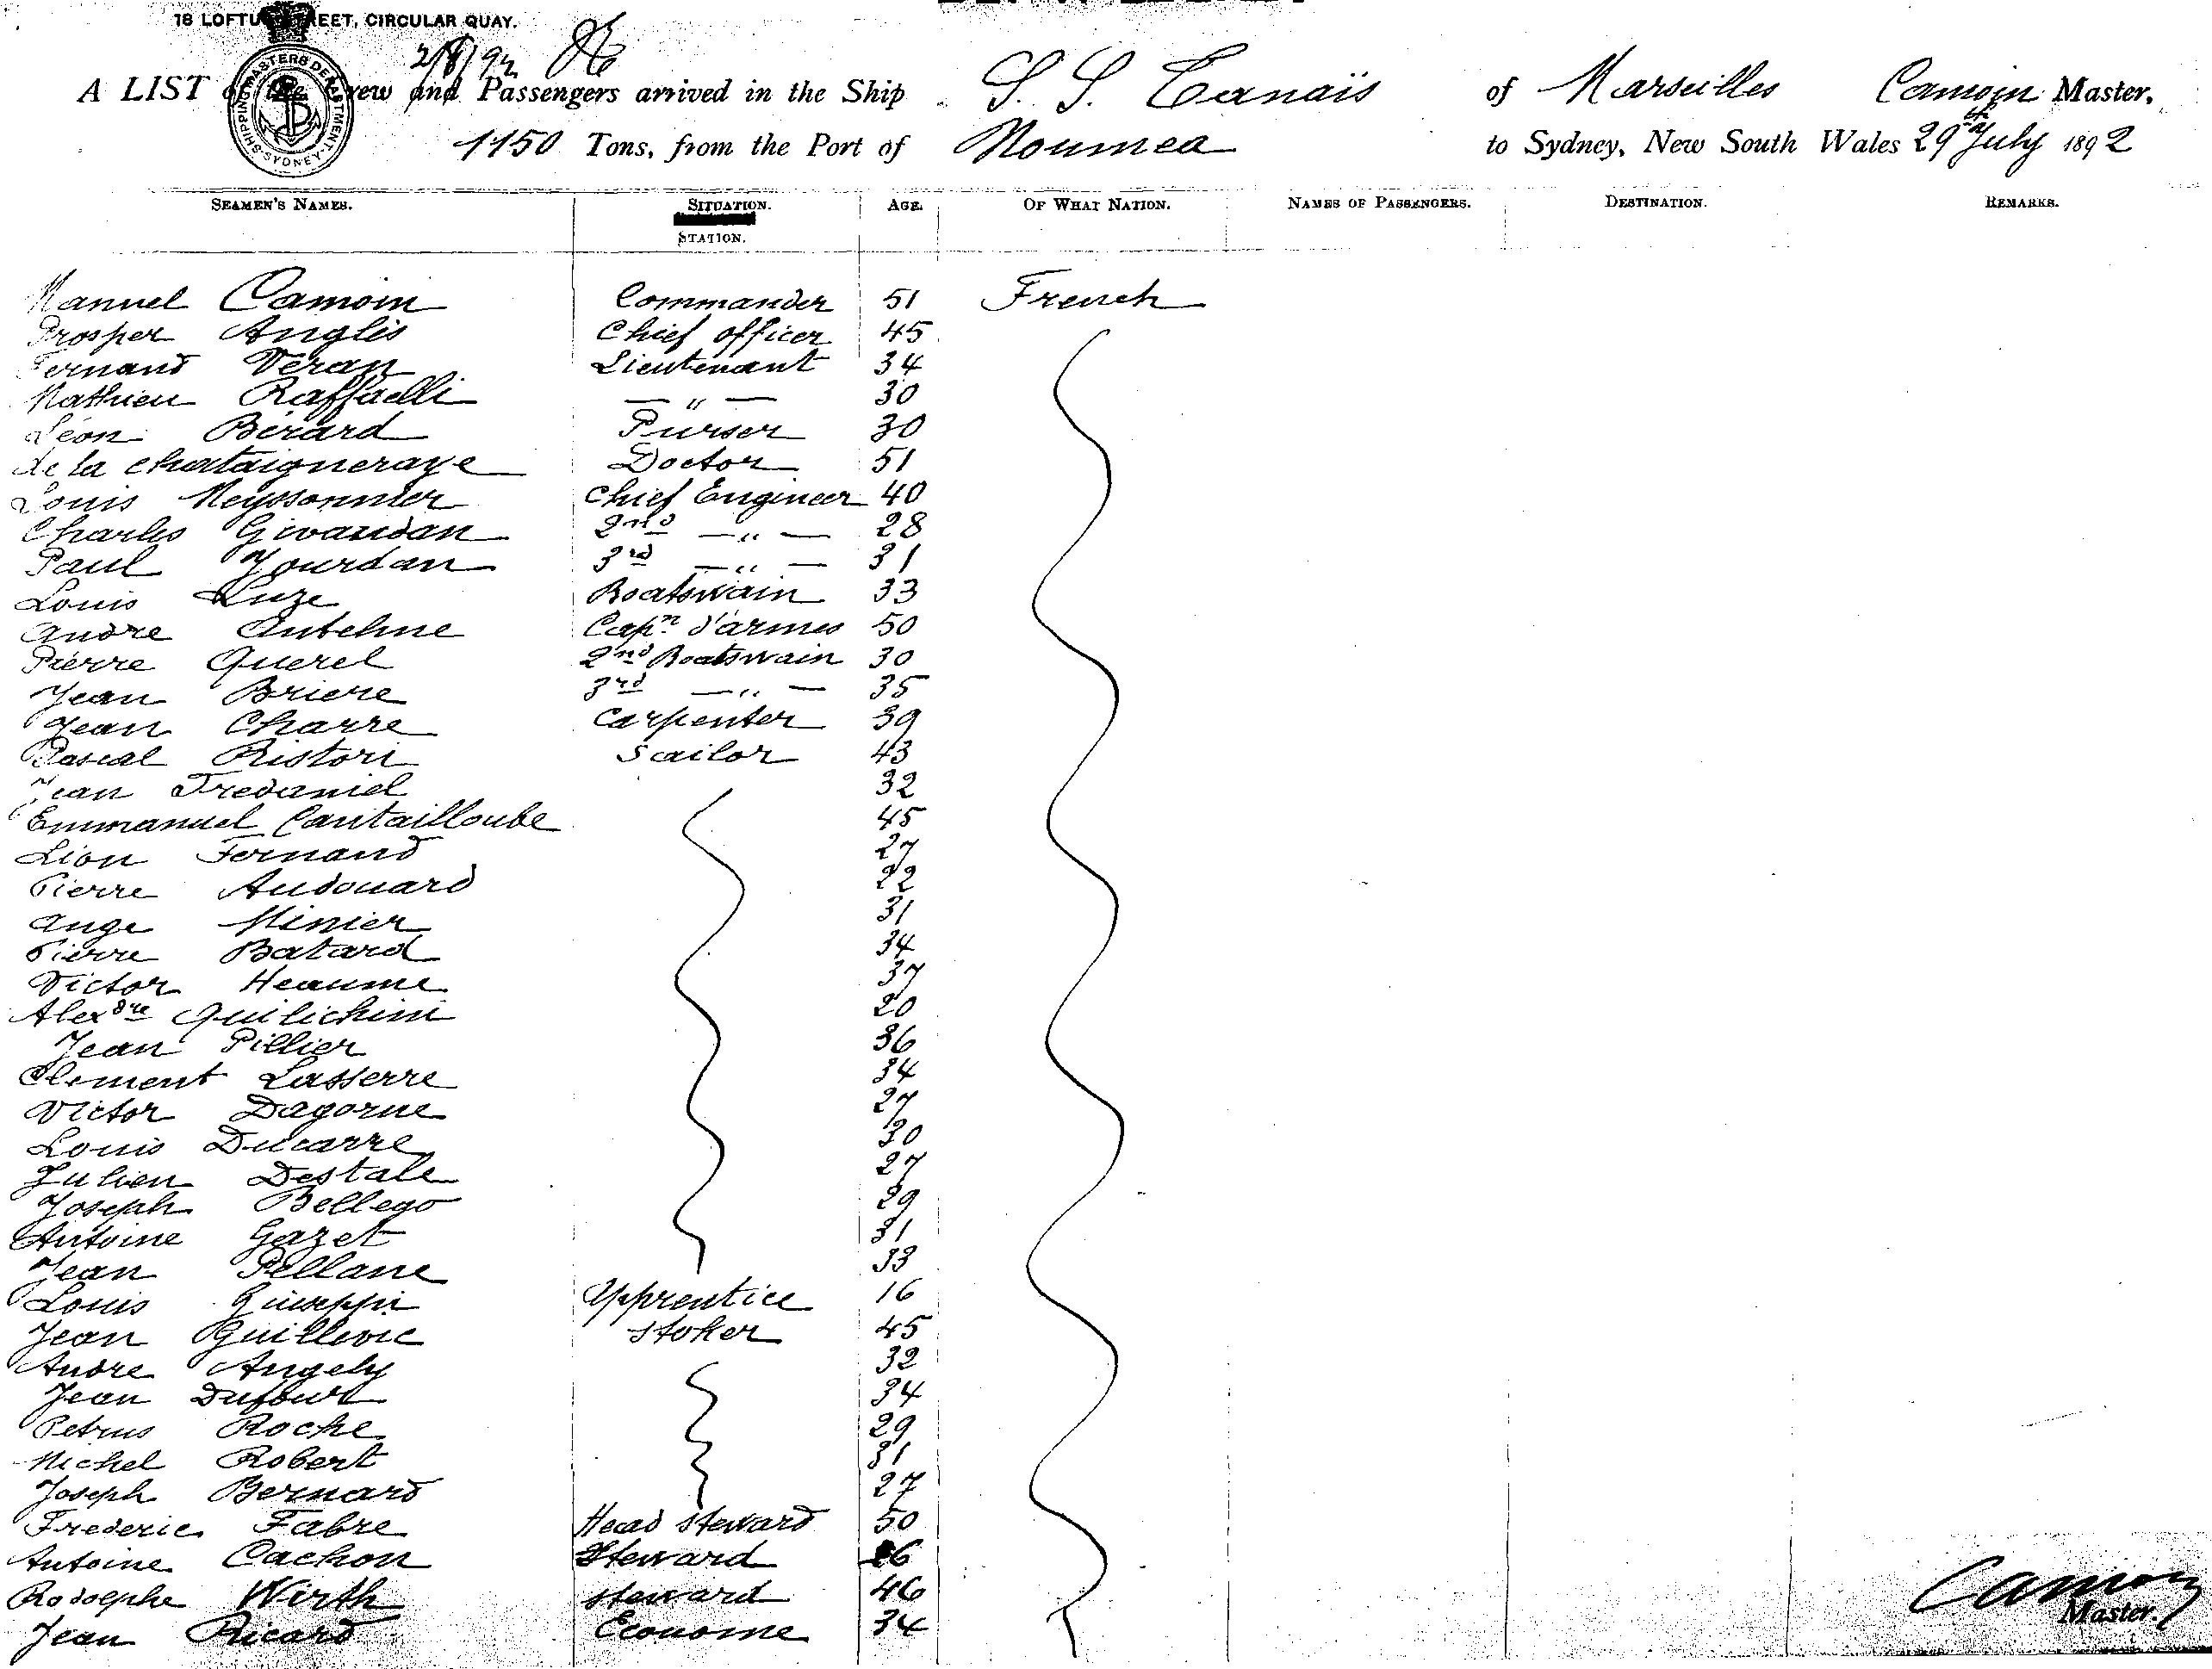 18 LOFTUS STREET, CIRCULAR QUAY.
2/8/92
A LIST of the Crew and Passengers arrived in the Ship S. S. Tanaïs of Marseilles Camoin Master,
1150 Tons, from the Port of Noumea to Sydney, New South Wales 29th July 1892
SHIPPING MASTERS DEPARTMENT. SYDNEY.
SEAMEN'S NAMES. SITUATION. AGE. OF WHAT NATION. NAMES OF PASSENGERS. DESTINATION. REMARKS.
STATION.
Manuel Camoin Commander 51 French
Prosper Anglis Chief officer 45
Fernand Veran Lieutenant 34
Mathieu Raffaelli — " — 30
Léon Bérard Purser 30
de la Chataigneraye Doctor 51
Louis Meyssonnier Chief Engineer 40
Charles Givaudan 2nd — " — 28
Paul Jourdan 3rd — " — 31
Louis Luze Boatswain 33
André Antelme Capn d'armes 50
Pierre Querel 2nd Boatswain 30
Jean Briere 3rd — " — 35
Jean Charre Carpenter 39
Pascal Ristori Sailor 43
Jean Tredaniel 32
Emmanuel Cantailloube 45
Lion Fernand 27
Pierre Audouard 22
Ange Minier 31
Pierre Batard 34
Victor Heaume 37
Alexdre Quilichini 20
Jean Pillier 36
Clement Lasserre 34
Victor Dagorne 27
Louis Ducarre 30
Julien Destale 27
Joseph Bellego 29
Antoine Gazet 31
Jean Pellane 33
Louis Giuseppi Apprentice 16
Jean Guillevic Stoker 45
Andre Angely 32
Jean Dufour 34
Petrus Roche 29
Michel Robert 31
Joseph Bernard 27
Frederic Fabre Head Steward 50
Antoine Cachon Steward 26
Rodolphe Wirth Steward 46
Jean Ricard Econome 34
Camoin
Master.